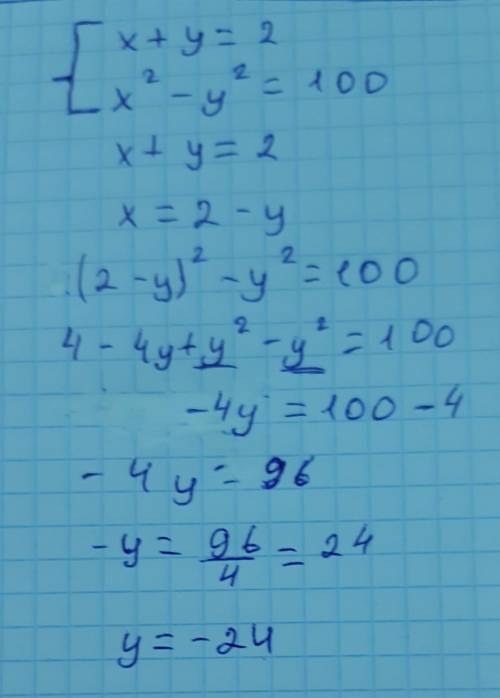 x + y = 2
x² - y² = 100
x + y = 2
x = 2 - y
(2 - y)² - y² = 100
4 - 4y + y² - y² = 100
-4y = 100 - 4
-4y = 96
-y = 96/4 = 24
y = -24